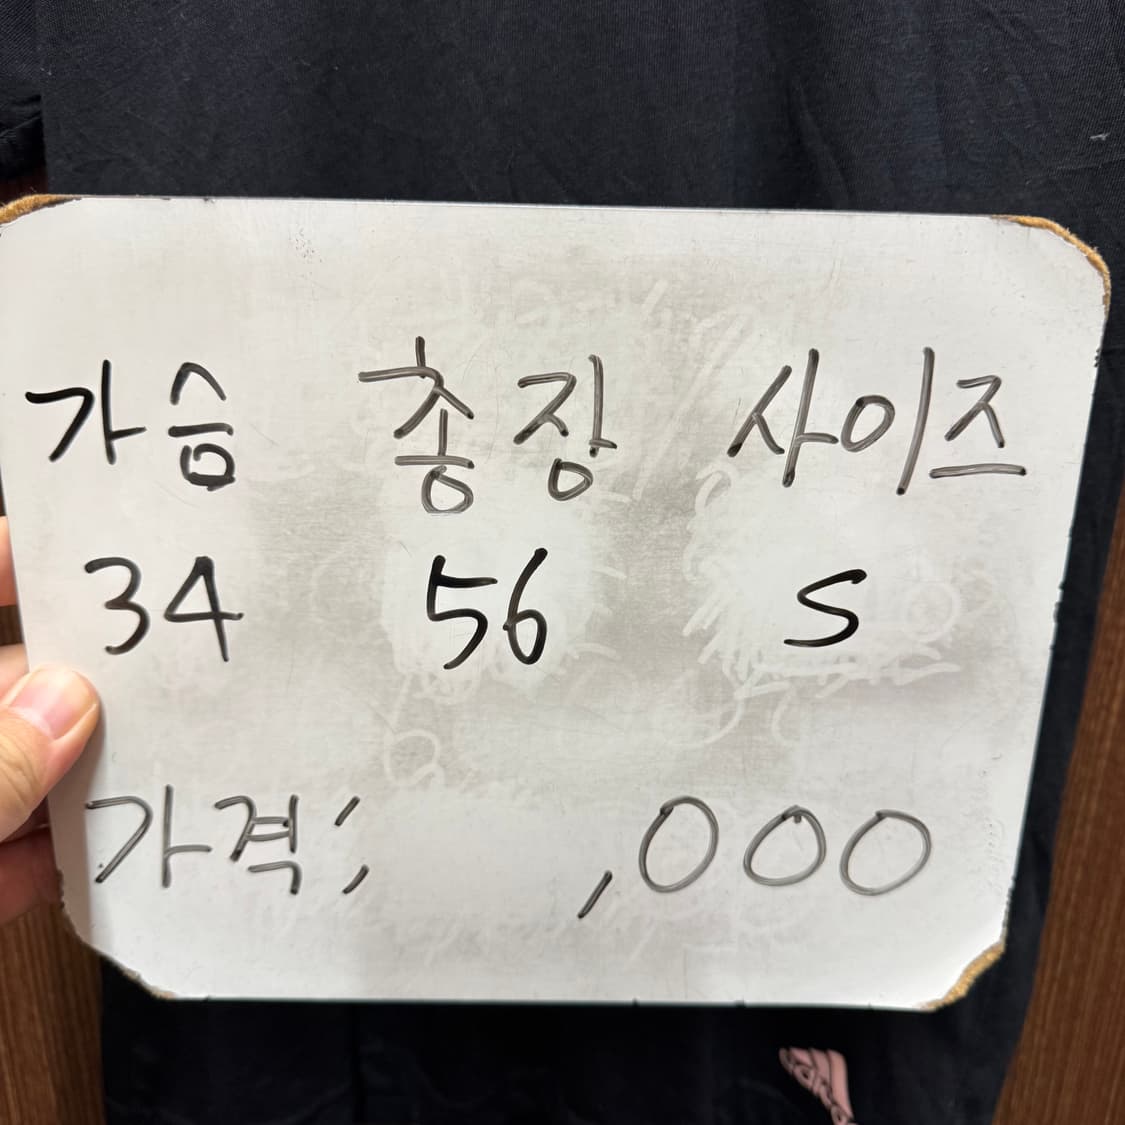 가슴 총장 사이즈
34 56 S
가격; ,000
adidas